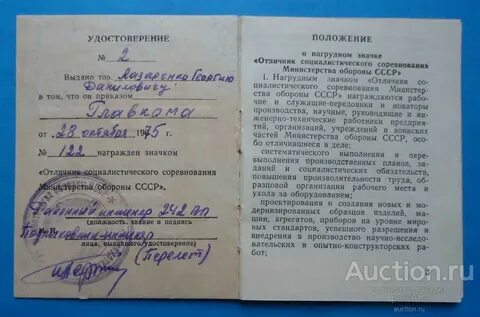 УДОСТОВЕРЕНИЕ
№ 2
Выдано тов. Назаренко Георгию
Даниловичу
в том, что он приказом
Главкома
от 28 октября 1975 г.
№ 122 награжден значком
«Отличник социалистического соревнования
Министерства обороны СССР».
Районный инженер 242
(должность, звание и подпись
лица, выдавшего удостоверение)
(Перелет)
ПОЛОЖЕНИЕ
о нагрудном значке
«Отличник социалистического соревнования
Министерства обороны СССР»
I. Нагрудным значком «Отличник со-
циалистического соревнования Министерст-
ва обороны СССР» награждаются рабо-
чие и служащие-передовики и новаторы
производства, научные, руководящие и ин-
женерно-технические работники предприя-
тий, организаций, учреждений и воинских
частей Министерства обороны СССР, осо-
бо отличившиеся в деле:
систематического выполнения и пере-
выполнения производственных планов, зада-
ний и социалистических обязательств,
повышения производительности труда, об-
разцовой организации рабочего места и
ухода за оборудованием;
проектирования и создания новых и мо-
дернизированных образцов изделий, ма-
шин, агрегатов, приборов на уровне миро-
вых стандартов, успешного разрешения
и внедрения в производство научно-иссле-
довательских и опытно-конструкторских
работ;
Auction.ru
auction.ru